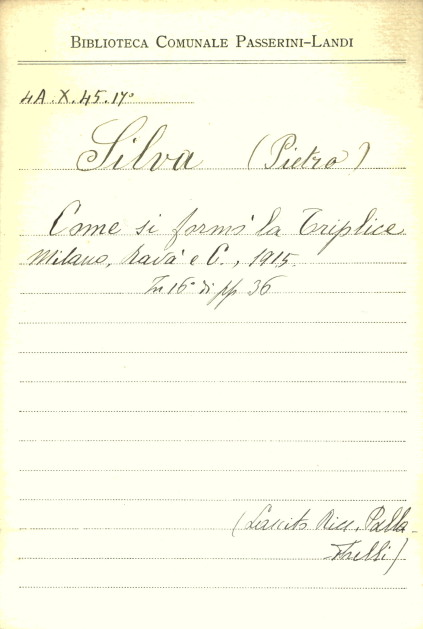 BIBLIOTECA COMUNALE PASSERINI-LANDI
4A.X.45.17°
Silva (Pietro)
Come si formò la Triplice
Milano, Ravà e C., 1915.
In 16° di pp 36
(Lascito Ricc. Palla-
strelli)